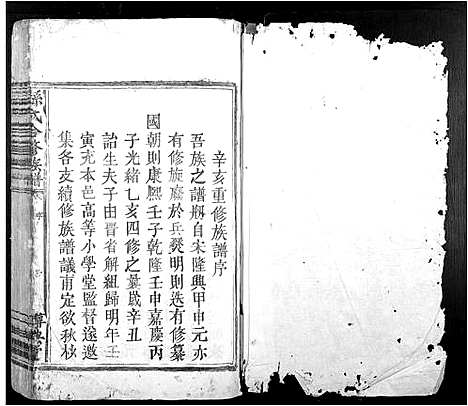 辛亥重修族譜序
吾族之譜剏自宋隆興甲申元亦
有修旋廢於兵燹明則迭有修纂
國朝則康熙壬子乾隆壬申嘉慶丙
子光緒乙亥四修之彙歲辛丑
詒生夫子由晋省解組歸明年壬
寅充本邑高等小學堂監督遂邀
集各支續修族譜議甫定欲秋枝
孫氏合修族譜